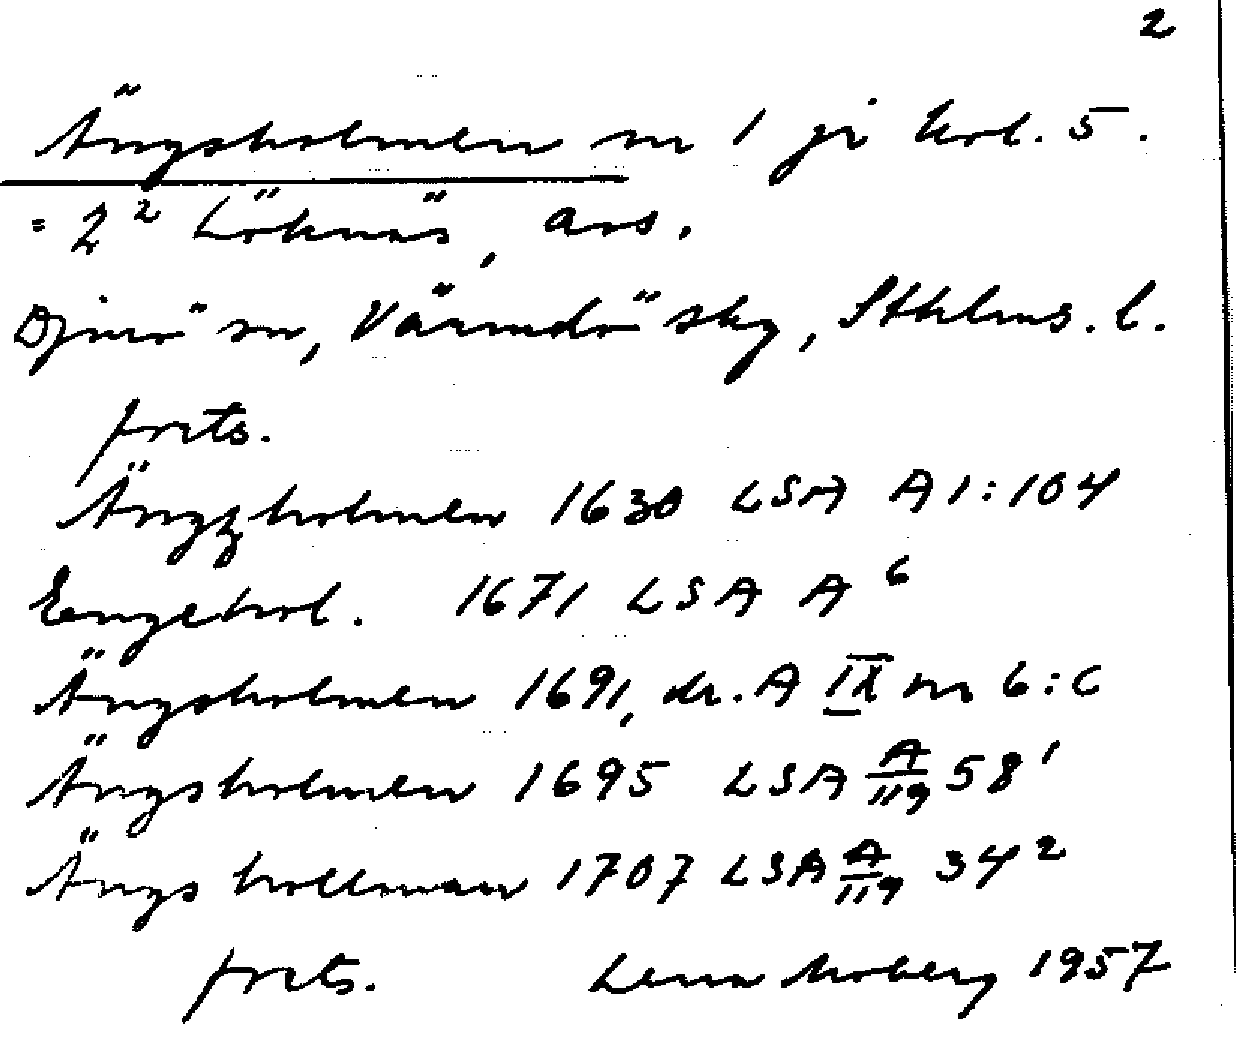 2
Ängsholmen nr 1 på kol. 5.
= 2² Löknäs, avs.
Djurö sn, Värmdö skg, Sthlms. l.
forts.
Ängzholmen 1630 LSA A1:104
Engehol. 1671 LSA A 6
Ängsholmen 1691, dr. A IX nr 6:C
Ängsholmen 1695 LSA A/119 58¹
Ängs hollman 1707 LSA A/119 34²
forts. Lena Moberg 1957